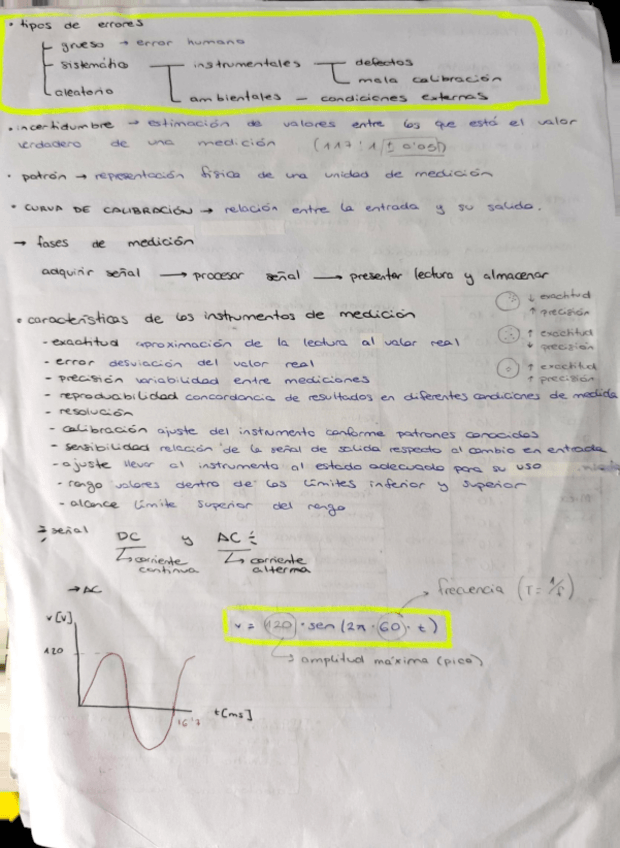 • tipos de errores
grueso → error humano
sistemático
instrumentales
defectos
mala calibración
ambientales - condiciones externas
aleatorio
• incertidumbre → estimación de valores entre los que está el valor
verdadero de una medición (117'1 ± 0'05)
• patrón → representación física de una unidad de medición
• CURVA DE CALIBRACIÓN → relación entre la entrada y su salida.
→ fases de medición
adquirir señal → procesar señal → presentar lectura y almacenar
• características de los instrumentos de medición
↓ exactitud
↑ precisión
↑ exactitud
↓ precisión
↑ exactitud
↑ precisión
- exactitud aproximación de la lectura al valor real
- error desviación del valor real
- precisión variabilidad entre mediciones
- reproduabilidad concordancia de resultados en diferentes condiciones de medida
- resolución
- calibración ajuste del instrumento conforme patrones conocidos
- sensibilidad relación de la señal de salida respecto al cambio en entrada
- ajuste llevar al instrumento al estado adecuado para su uso
- rango valores dentro de los límites inferior y superior
- alcance límite superior del rango
señal DC y AC
↳ corriente continua
↳ corriente alterna
→ AC
frecuencia (T = 1/f)
v [v]
v = 120 · sen (2π · 60 · t)
120
↳ amplitud máxima (pico)
t [ms]
16'7